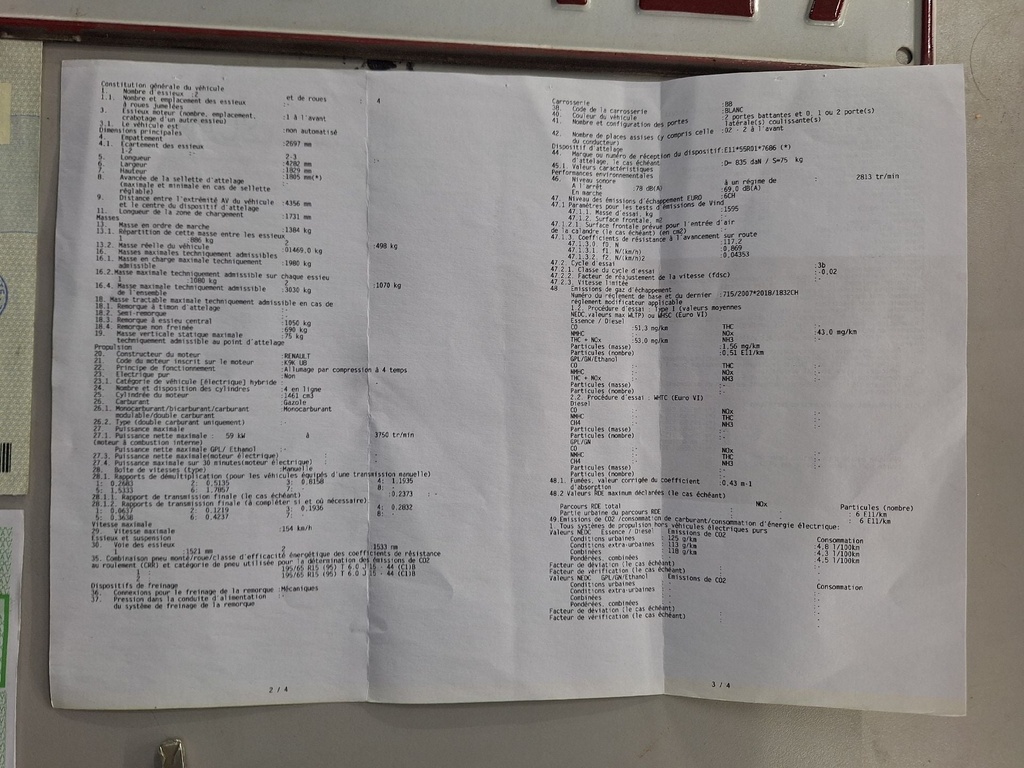 Constitution générale du véhicule
1. Nombre d'essieux :2 et de roues : 4
1.1. Nombre et emplacement des essieux :-
à roues jumelées
3. Essieux moteur (nombre, emplacement, :1 à l'avant
crabotage d'un autre essieu)
3.1. Le véhicule est :non automatisé
Dimensions principales
4. Empattement :2697 mm
4.1. Ecartement des essieux
1-2 2-3
5. Longueur :4282 mm
6. Largeur :1829 mm
7. Hauteur :1805 mm(*)
8. Avancée de la sellette d'attelage
(maximale et minimale en cas de sellette
réglable)
9. Distance entre l'extrémité AV du véhicule :4356 mm
et le centre du dispositif d'attelage
11. Longueur de la zone de chargement :1731 mm
Masses
13. Masse en ordre de marche :1384 kg
13.1. Répartition de cette masse entre les essieux
1 :886 kg 2 :498 kg
13.2. Masse réelle du véhicule :01469.0 kg
16. Masses maximales techniquement admissibles
16.1. Masse en charge maximale techniquement :1980 kg
admissible
16.2.Masse maximale techniquement admissible sur chaque essieu
1 :1080 kg 2 :1070 kg
16.4. Masse maximale techniquement admissible :3030 kg
de l'ensemble
18. Masse tractable maximale techniquement admissible en cas de
18.1. Remorque à timon d'attelage :-
18.2. Semi-remorque :-
18.3. Remorque à essieu central :1050 kg
18.4. Remorque non freinée :690 kg
19. Masse verticale statique maximale :75 kg
techniquement admissible au point d'attelage
Propulsion
20. Constructeur du moteur :RENAULT
21. Code du moteur inscrit sur le moteur :K9K U8
22. Principe de fonctionnement :Allumage par compression à 4 temps
23. Electrique pur :Non
23.1. Catégorie de véhicule [électrique] hybride :-
24. Nombre et disposition des cylindres :4 en ligne
25. Cylindrée du moteur :1461 cm3
26. Carburant :Gazole
26.1. Monocarburant/bicarburant/carburant :Monocarburant
modulable/double carburant
26.2. Type (double carburant uniquement) :-
27. Puissance maximale
27.1. Puissance nette maximale : 59 kW à 3750 tr/min
(moteur à combustion interne)
Puissance nette maximale GPL/ Ethanol
27.3. Puissance nette maximale(moteur électrique) :
27.4. Puissance maximale sur 30 minutes(moteur électrique) :
28. Boîte de vitesses (type) :Manuelle
28.1. Rapports de démultiplication (pour les véhicules équipés d'une transmission manuelle)
1: 0.2683 2: 0.5135 3: 0.8158 4: 1.1935
5: 1.5333 6: 1.7857 7: - 8:
28.1.1. Rapport de transmission finale (le cas échéant) :0.2373
28.1.2. Rapports de transmission finale (à compléter si et où nécessaire)
1: 0.0637 2: 0.1219 3: 0.1936 4: 0.2832
5: 0.3638 6: 0.4237 7: - 8:
Vitesse maximale
29. Vitesse maximale :154 km/h
Essieux et suspension
30. Voie des essieux
1 :1521 mm 2 :1533 mm
35. Combinaison pneu monté/roue/classe d'efficacité énergétique des coefficients de résistance
au roulement (CRR) et catégorie de pneu utilisée pour la détermination des émissions de CO2
1 195/65 R15 (95) T 6.0 J 15 - 44 (C1)B
2 195/65 R15 (95) T 6.0 J 15 - 44 (C1)B
Dispositifs de freinage
36. Connexions pour le freinage de la remorque :Mécaniques
37. Pression dans la conduite d'alimentation :-
du système de freinage de la remorque
2 / 4
Carrosserie
38. Code de la carrosserie :BB
40. Couleur du véhicule :BLANC
41. Nombre et configuration des portes :2 portes battantes et 0, 1 ou 2 porte(s)
latérale(s) coulissante(s)
42. Nombre de places assises (y compris celle :02 - 2 à l'avant
du conducteur)
Dispositif d'attelage
44. Marque ou numéro de réception du dispositif:E11*55R01*7686 (*)
d'attelage, le cas échéant
45.1. Valeurs caractéristiques :D= 835 daN / S=75 kg
Performances environnementales
46. Niveau sonore
A l'arrêt :78 dB(A) à un régime de 2813 tr/min
En marche :69.0 dB(A)
47. Niveau des émissions d'échappement EURO :6CH
47.1 Paramètres pour les tests d'émissions de Vind
47.1.1. Masse d'essai, kg :1595
47.1.2. Surface frontale, m2
47.1.2.1 Surface frontale prévue pour l'entrée d'air
de la calandre (le cas échéant) (en cm2)
47.1.3. Coefficients de résistance à l'avancement sur route
47.1.3.0. f0, N :117.2
47.1.3.1. f1, N/(km/h) :0.869
47.1.3.2. f2, N/(km/h)2 :0.04353
47.2. Cycle d'essai
47.2.1. Classe du cycle d'essai :3b
47.2.2. Facteur de réajustement de la vitesse (fdsc) :-0.02
47.2.3. Vitesse limitée
48. Emissions de gaz d'échappement
Numéro du règlement de base et du dernier :715/2007*2018/1832CH
règlement modificateur applicable
1.2. Procédure d'essai : Type 1 (valeurs moyennes
NEDC,valeurs max WLTP) ou WHSC (Euro VI)
Essence / Diesel
CO :51.3 mg/km THC
NMHC NOx :43.0 mg/km
THC + NOx :53.0 mg/km NH3
Particules (masse) :1.56 mg/km
Particules (nombre) :0.51 E11/km
GPL/GN/Ethanol
CO :- THC
NMHC NOx
THC + NOx NH3
Particules (masse)
Particules (nombre)
2.2. Procédure d'essai : WHTC (Euro VI)
Diesel
CO NOx
NMHC THC
CH4 NH3
Particules (masse)
Particules (nombre)
GPL/GN
CO NOx
NMHC THC
CH4 NH3
Particules (masse)
Particules (nombre)
48.1. Fumées, valeur corrigée du coefficient :0.43 m-1
d'absorption
48.2 Valeurs RDE maximum déclarées (le cas échéant)
NOx Particules (nombre)
Parcours RDE total : 6 E11/km
Partie urbaine du parcours RDE : 6 E11/km
49.Emissions de CO2 /consommation de carburant/consommation d'énergie électrique:
1. Tous systèmes de propulsion hors véhicules électriques purs
Valeurs NEDC Essence / Diesel Emissions de CO2 Consommation
Conditions urbaines :125 g/km :4.8 l/100km
Conditions extra-urbaines :113 g/km :4.3 l/100km
Combinées :118 g/km :4.5 l/100km
Pondérées, combinées :-
Facteur de déviation (le cas échéant)
Facteur de vérification (le cas échéant)
Valeurs NEDC GPL/GN/Ethanol Emissions de CO2 Consommation
Conditions urbaines
Conditions extra-urbaines
Combinées
Pondérées, combinées
Facteur de déviation (le cas échéant)
Facteur de vérification (le cas échéant)
3 / 4